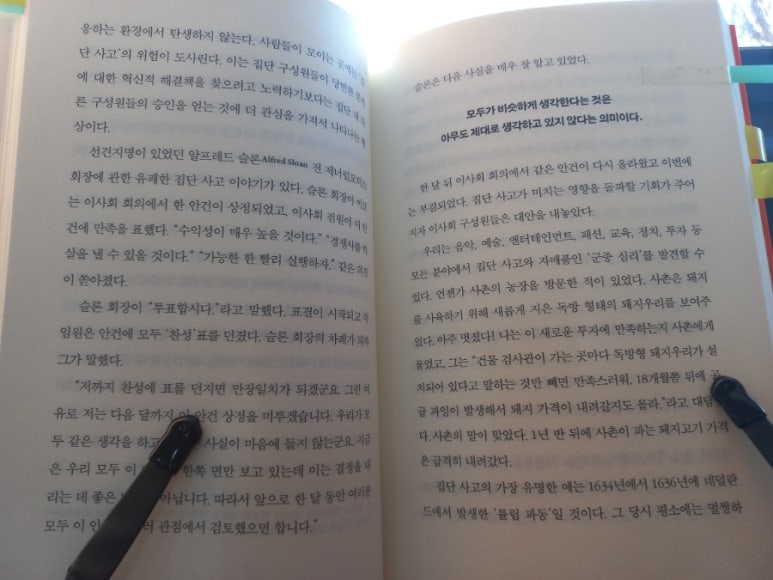 응하는 환경에서 탄생하지 않는다. 사람들이 모이는 곳에는
단 사고'의 위험이 도사린다. 이는 집단 구성원들이 당면한
에 대한 혁신적 해결책을 찾으려고 노력하기보다는 집단 내
른 구성원들의 승인을 얻는 것에 더 관심을 가져서 나타나는
상이다.
선견지명이 있었던 알프레드 슬론Alfred Sloan 전 제너럴모터스
회장에 관한 유쾌한 집단 사고 이야기가 있다. 슬론 회장이
는 이사회 회의에서 한 안건이 상정되었고, 이사회 전원이 이 안
건에 만족을 표했다. "수익성이 매우 높을 것이다." "경쟁사를
살을 낼 수 있을 것이다." "가능한 한 빨리 실행하자." 같은 의견
이 쏟아졌다.
슬론 회장이 "투표합시다."라고 말했다. 표결이 시작되고 각
임원은 안건에 모두 '찬성'표를 던졌다. 슬론 회장의 차례가 되자
그가 말했다.
"저까지 찬성에 표를 던지면 만장일치가 되겠군요. 그런 이
유로 저는 다음 달까지 이 안건 상정을 미루겠습니다. 우리가 모
두 같은 생각을 하고 사실이 마음에 들지 않는군요. 지금
은 우리 모두 이 한쪽 면만 보고 있는데 이는 결정을 내
리는 데 좋은 아닙니다. 따라서 앞으로 한 달 동안 여러분
모두 이 관점에서 검토했으면 합니다."
슬론은 다음 사실을 매우 잘 알고 있었다.
모두가 비슷하게 생각한다는 것은
아무도 제대로 생각하고 있지 않다는 의미이다.
한 달 뒤 이사회 회의에서 같은 안건이 다시 올라왔고 이번에
는 부결되었다. 집단 사고가 미치는 영향을 돌파할 기회가 주어
지자 이사회 구성원들은 대안을 내놓았다.
우리는 음악, 예술, 엔터테인먼트, 패션, 교육, 정치, 투자 등
모든 분야에서 집단 사고와 자매품인 '군중 심리'를 발견할 수
있다. 언젠가 사촌의 농장을 방문한 적이 있었다. 사촌은 돼지
를 사육하기 위해 새롭게 지은 독방 형태의 돼지우리를 보여주
었다. 아주 멋졌다! 나는 이 새로운 투자에 만족하는지 사촌에게
물었고, 그는 "건물 검사관이 가는 곳마다 독방형 돼지우리가 설
치되어 있다고 말하는 것만 빼면 만족스러워. 18개월쯤 뒤에 공
급 과잉이 발생해서 돼지 가격이 내려갈지도 몰라."라고 대답
다. 사촌의 말이 맞았다. 1년 반 뒤에 사촌이 파는 돼지고기 가격
은 급격히 내려갔다.
집단 사고의 가장 유명한 예는 1634년에서 1636년에 네덜란
드에서 발생한 '튤립 파동'일 것이다. 그 당시 평소에는 멀쩡하